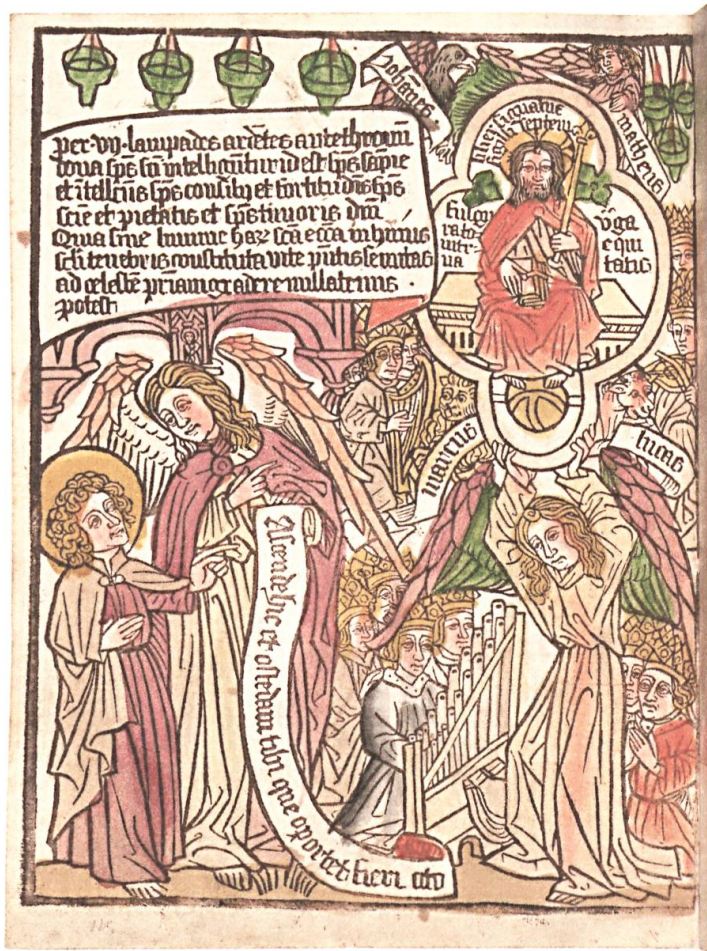 Johānes
matheus
per · vij · lampades ardētes ante thronū
bona sp̄s sc̄i intelligūtur id est sp̄s sapīe
et ītellcūs sp̄s consilij et fortitudīs sp̄s
scīe et pietatis et sp̄s timoris dn̄i
Quia sine lumine
sc̄a ecc̄a in huius
sc̄li tenebris constituta
ad celestē pr̄iam gradere nullatenus ·
potest
liber signatus
septem
fulgu
rato
vitr
ua
v̄ga
equi
tatis
marcus
lucas
Ascende huc et ostēdam tibi que oportet fieri cito